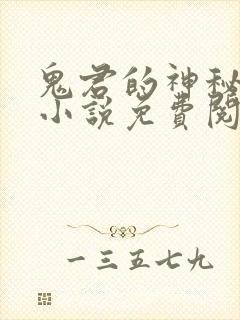 鬼君的神秘
小说免費閱
一三五七九